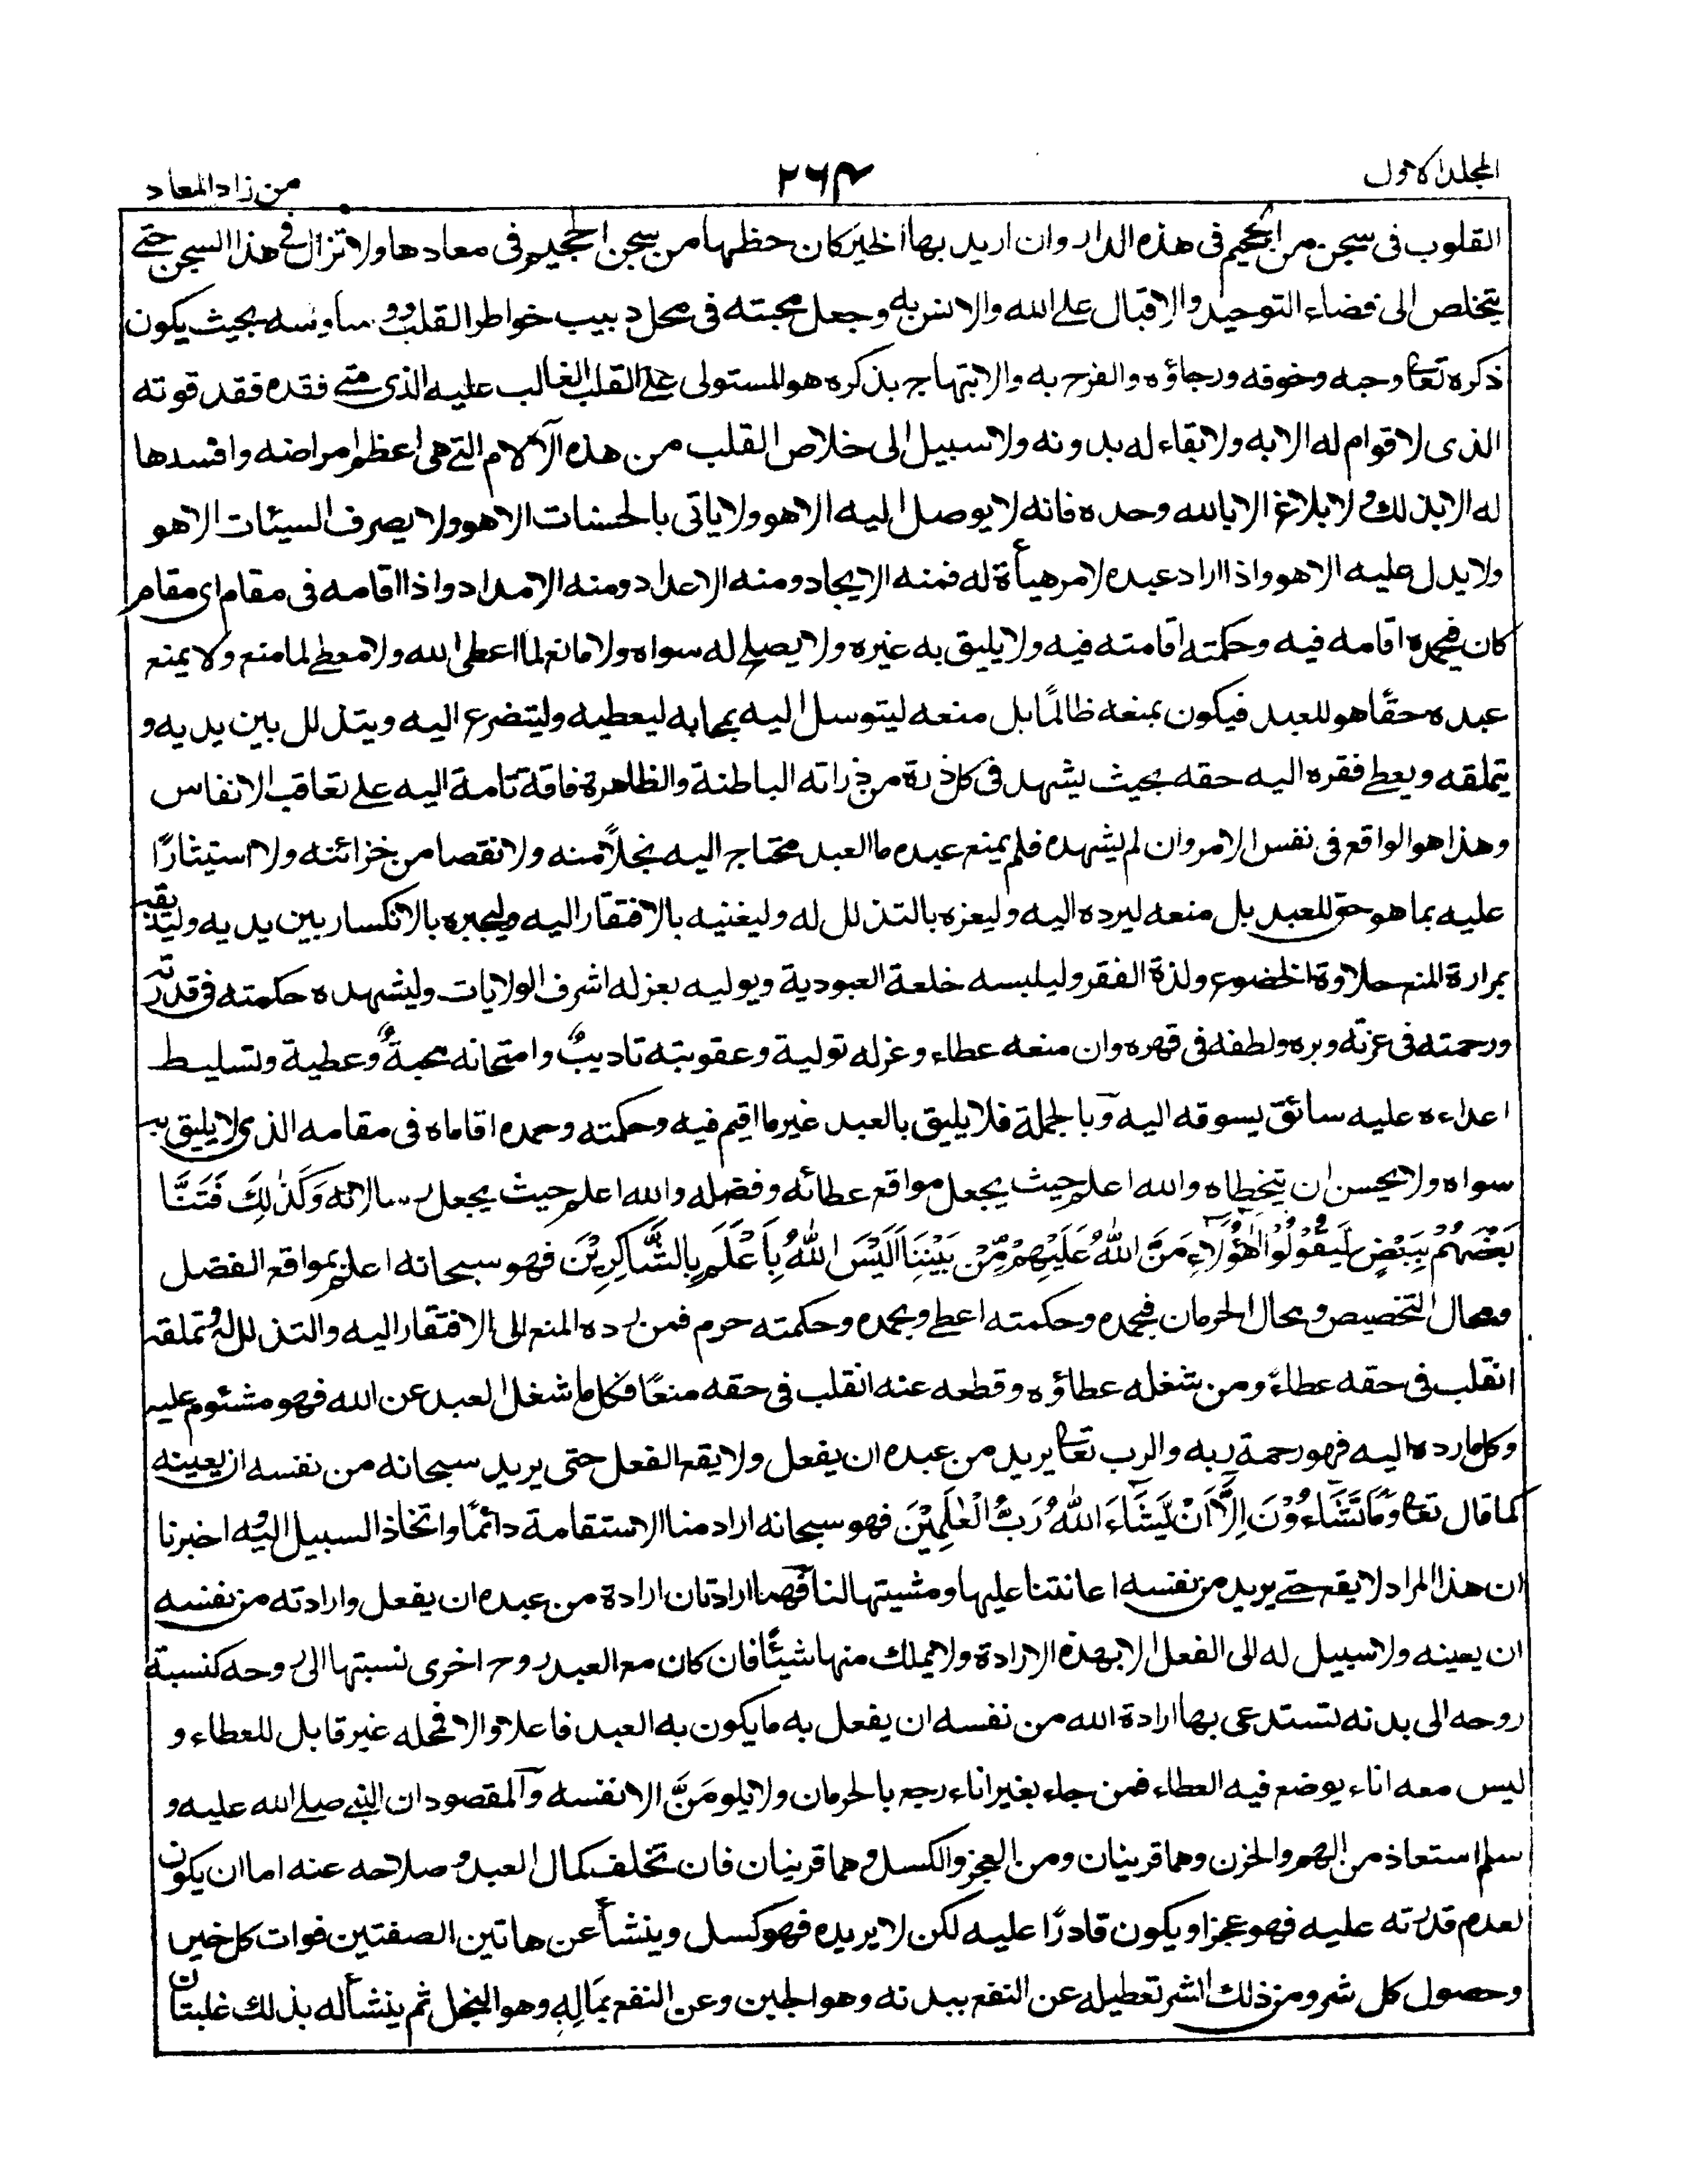 المجلد الاول
٢٦٤
من زاد المعاد
القلوب فى سجن من الجحيم فى هذه الدار وان اريد بها الخير كان حظها من سجن الجحيم فى معادها ولا تزال فى هذا السجن حتى
يتخلص الى فضاء التوحيد والاقبال على الله والانس به وجعل محبته فى محل دبيب خواطر القلب ووساوسه بحيث يكون
ذكره تعالى وحبه وخوفه ورجاؤه والفرح به والابتهاج بذكره هو المستولى على القلب الغالب عليه الذى متى فقده فقد قوته
الذى لا قوام له الا به ولا بقاء له بدونه ولا سبيل الى خلاص القلب من هذه الآلام التى هى اعظم امراضه وافسدها
له الا بذلك ولا بلاغ الا بالله وحده فانه لا يوصل اليه الا هو ولا ياتى بالحسنات الا هو ولا يصرف السيئات الا هو
ولا يدل عليه الا هو واذا اراد عبده لامر هيأة له فمنه الايجاد ومنه الاعداد ومنه الامداد واذا اقامه فى مقام اى مقام
كان فبحمده اقامه فيه وحكمته اقامته فيه ولا يليق به غيره ولا يصلح له سواه ولا مانع لما اعطى الله ولا معطى لما منع ولا يمنع
عبده حقًا هو للعبد فيكون بمنعه ظالمًا بل منعه ليتوسل اليه بمحابه ليعطيه وليتضرع اليه ويتذلل بين يديه و
يتملقه ويعطى فقره اليه حقه بحيث يشهد فى كل ذرة من ذراته الباطنة والظاهرة فاقة تامة اليه على تعاقب الانفاس
وهذا هو الواقع فى نفس الامر وان لم يشهده فلم يمنع عبده ما العبد محتاج اليه بخلاً منه ولا نقصا من خزائنه ولا استيثارًا
عليه بما هو حق للعبد بل منعه ليرده اليه وليعزه بالتذلل له وليغنيه بالافتقار اليه وليجبره بالانكسار بين يديه وليذيقه
بمرارة المنع حلاوة الخضوع ولذة الفقر وليلبسه خلعة العبودية ويوليه بعزله اشرف الولايات وليشهده حكمته فى قدرته
ورحمته فى عزته وبره ولطفه فى قهره وان منعه عطاء وعزله تولية وعقوبته تاديبٌ وامتحانه محبةٌ وعطية وتسليط
اعداءه عليه سائق يسوقه اليه وبالجملة فلا يليق بالعبد غير ما اقيم فيه وحكمته وحمده اقاماه فى مقامه الذى لا يليق به
سواه ولا يحسن ان يتخطاه والله اعلم حيث يجعل مواقع عطائه وفضله والله اعلم حيث يجعل رسالاته وَكَذٰلِكَ فَتَنَّا
بَعْضَهُمْ بِبَعْضٍ لِّيَقُوْلُوْا اَهٰؤُلَاءِ مَنَّ اللّٰهُ عَلَيْهِمْ مِّنْ بَيْنِنَا اَلَيْسَ اللّٰهُ بِاَعْلَمَ بِالشَّاكِرِيْنَ فهو سبحانه اعلم بمواقع الفضل
ومحال التخصيص ومحال الحرمان فبحمده وحكمته اعطى وبحمده وحكمته حرم فمن رده المنع الى الافتقار اليه والتذلل له وتملقه
انقلب فى حقه عطاءً ومن شغله عطاؤه وقطعه عنه انقلب فى حقه منعًا فكل ما شغل العبد عن الله فهو مشئوم عليه
وكل ما رده اليه فهو رحمة ربه والرب تعالى يريد من عبده ان يفعل ولا يقع الفعل حتى يريد سبحانه من نفسه ان يعينه
كما قال تعالى وَمَا تَشَاءُوْنَ اِلَّا اَنْ يَّشَاءَ اللّٰهُ رَبُّ الْعٰلَمِيْنَ فهو سبحانه اراد منا الاستقامة دائمًا واتخاذ السبيل اليه اخبرنا
ان هذا المراد لا يقع حتى يريد من نفسه اعانتنا عليها ومشيتها لنا فهما ارادتان ارادة من عبده ان يفعل وارادته من نفسه
ان يعينه ولا سبيل له الى الفعل الا بهذه الارادة ولا يملك منها شيئًا فان كان مع العبد روح اخرى نسبتها الى روحه كنسبة
روحه الى بدنه تستدعى بها ارادة الله من نفسه ان يفعل به ما يكون به العبد فاعلا والا فمحله غير قابل للعطاء و
ليس معه اناء يوضع فيه العطاء فمن جاء بغير اناء رجع بالحرمان ولا يلومَنَّ الا نفسه والمقصود ان النبى صلى الله عليه و
سلم استعاذ من الهم والحزن وهما قرينان ومن العجز والكسل وهما قرينان فان تخلف كمال العبد وصلاحه عنه اما ان يكون
لعدم قدرته عليه فهو عجز او يكون قادرًا عليه لكن لا يريده فهو كسل وينشأ عن هاتين الصفتين فوات كل خير
وحصول كل شر ومن ذلك الشر تعطيله عن النفع ببدنه وهو الجبن وعن النفع بمَالِهِ وهو البخل ثم ينشأ له بذلك غلبتان